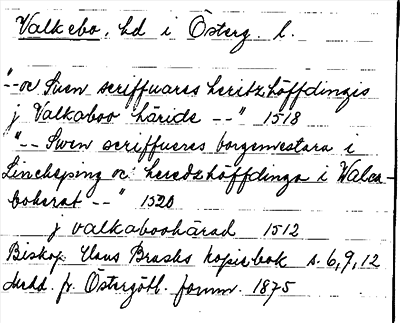 Valkebo, hd i Österg. l.
"--oc Swen scriffwares heritzhöffdingis
j Valkaboo häride --" 1518
"-- Swen scriffueres borgemestara i
Lincheping oc heredzhöffdinga i Walca-
boherat --" 1520
j valkaboohärad 1512
Biskop Hans Brasks kopiebok s. 6, 9, 12
Medd. fr. Östergötl. fornm. 1875